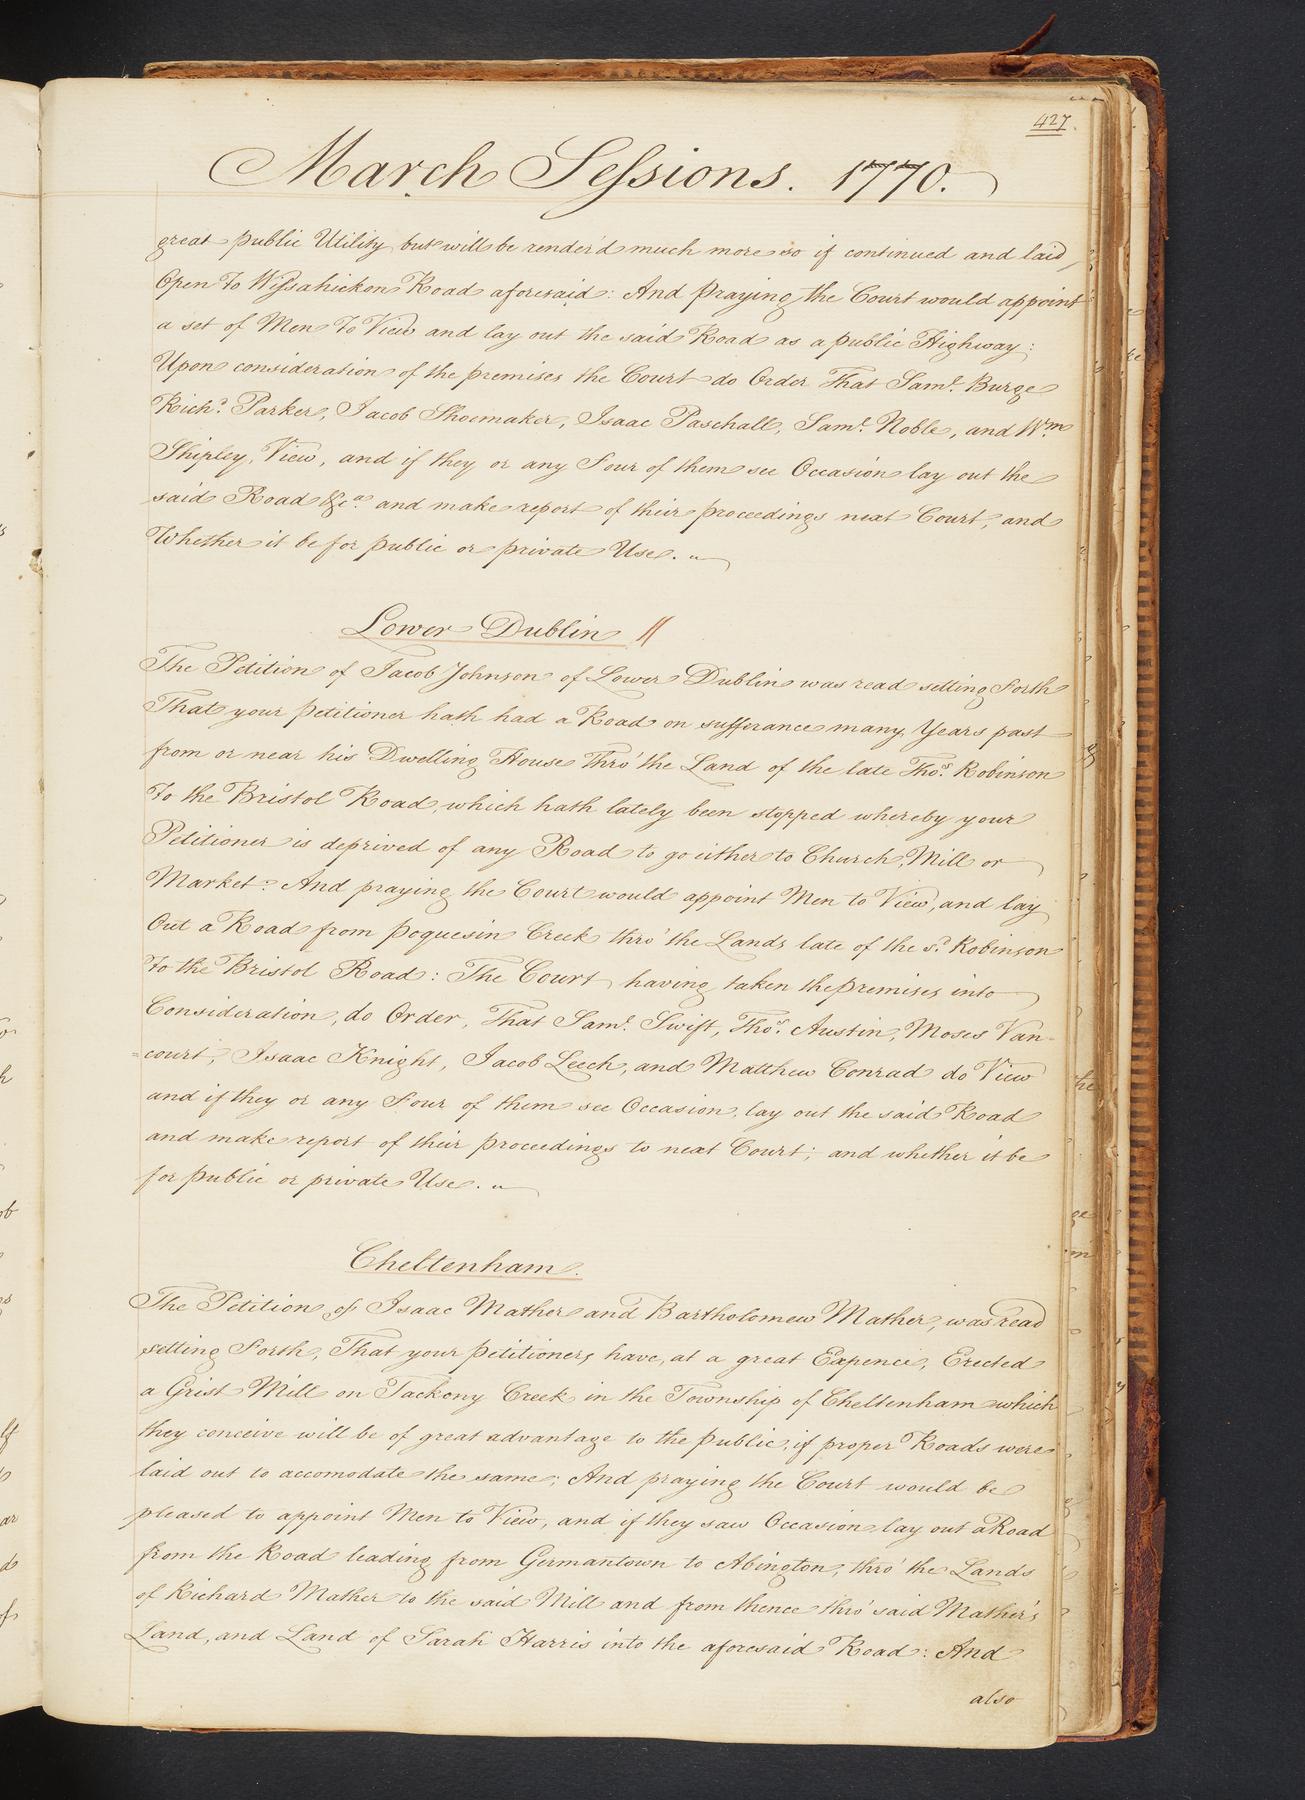 427.
March Sessions. 1770.
great public Utility but will be render'd much more so if continued and laid
Open To Wissahickon Road aforesaid: And Praying the Court would appoint
a set of Men To View and lay out the said Road as a public Highway:
Upon consideration of the premises the Court do Order That Saml. Burge
Richd. Parker, Jacob Shoemaker, Isaac Paschall, Saml. Noble, and Wm.
Shipley, View, and if they or any Four of them see Occasion lay out the
said Road &ca. and make report of their proceedings next Court, and
Whether it be for public or private Use.
Lower Dublin //
The Petition of Jacob Johnson of Lower Dublin was read setting Forth
That your Petitioner hath had a Road on sufferance many Years past
from or near his Dwelling House Thro' the Land of the late Thos. Robinson
To the Bristol Road, which hath lately been stopped whereby your
Petitioner is deprived of any Road to go either to Church, Mill or
Market: And praying the Court would appoint Men to View, and lay
Out a Road from Poquesin Creek thro' the Lands late of the sd. Robinson
To the Bristol Road: The Court having taken the premises into
Consideration, do Order, That Saml. Swift, Thos. Austin, Moses Van-
=court, Isaac Knight, Jacob Leech, and Matthew Conrad do View
and if they or any Four of them see Occasion, lay out the said Road
and make report of their proceedings to next Court; and whether it be
for public or private Use.
Cheltenham.
The Petition of Isaac Mather and Bartholomew Mather, was read
setting Forth, That your Petitioners have, at a great Expence, Erected
a Grist Mill on Tackony Creek in the Township of Cheltenham which
they conceive will be of great advantage to the Public, if proper Roads were
laid out to accomodate the same; And praying the Court would be
pleased to appoint Men to View, and if they saw Occasion lay out a Road
from the Road leading from Germantown to Abington, thro' the Lands
of Richard Mather to the said Mill and from thence thro' said Mather's
Land, and Land of Sarah Harris into the aforesaid Road: And
also